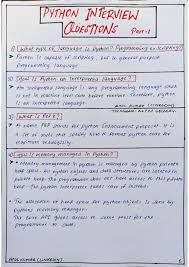 PYTHON INTERVIEW
QUESTIONS Part-1
1) What type of language is Python? Programming or scripting?
Python is capable of scripting, but in general purpose
programming language.
2) Is Python an interpreted language?
An interpreted language is any programming language which is
not in machine level code before runtime. Therefore, python
is an interpreted language.
3) What is PEP 8?
PEP
maximum readability.
4) How is memory managed in Python?
Memory management in python is managed by python private
heap space. All python objects and data structures are located in
private heap. The programmer does not have access to this private
heap. The python interpreter takes care of
The allocation of heap space for python objects is done by
python memory manager.
The core API gives access to some tools for the
programmer to code.